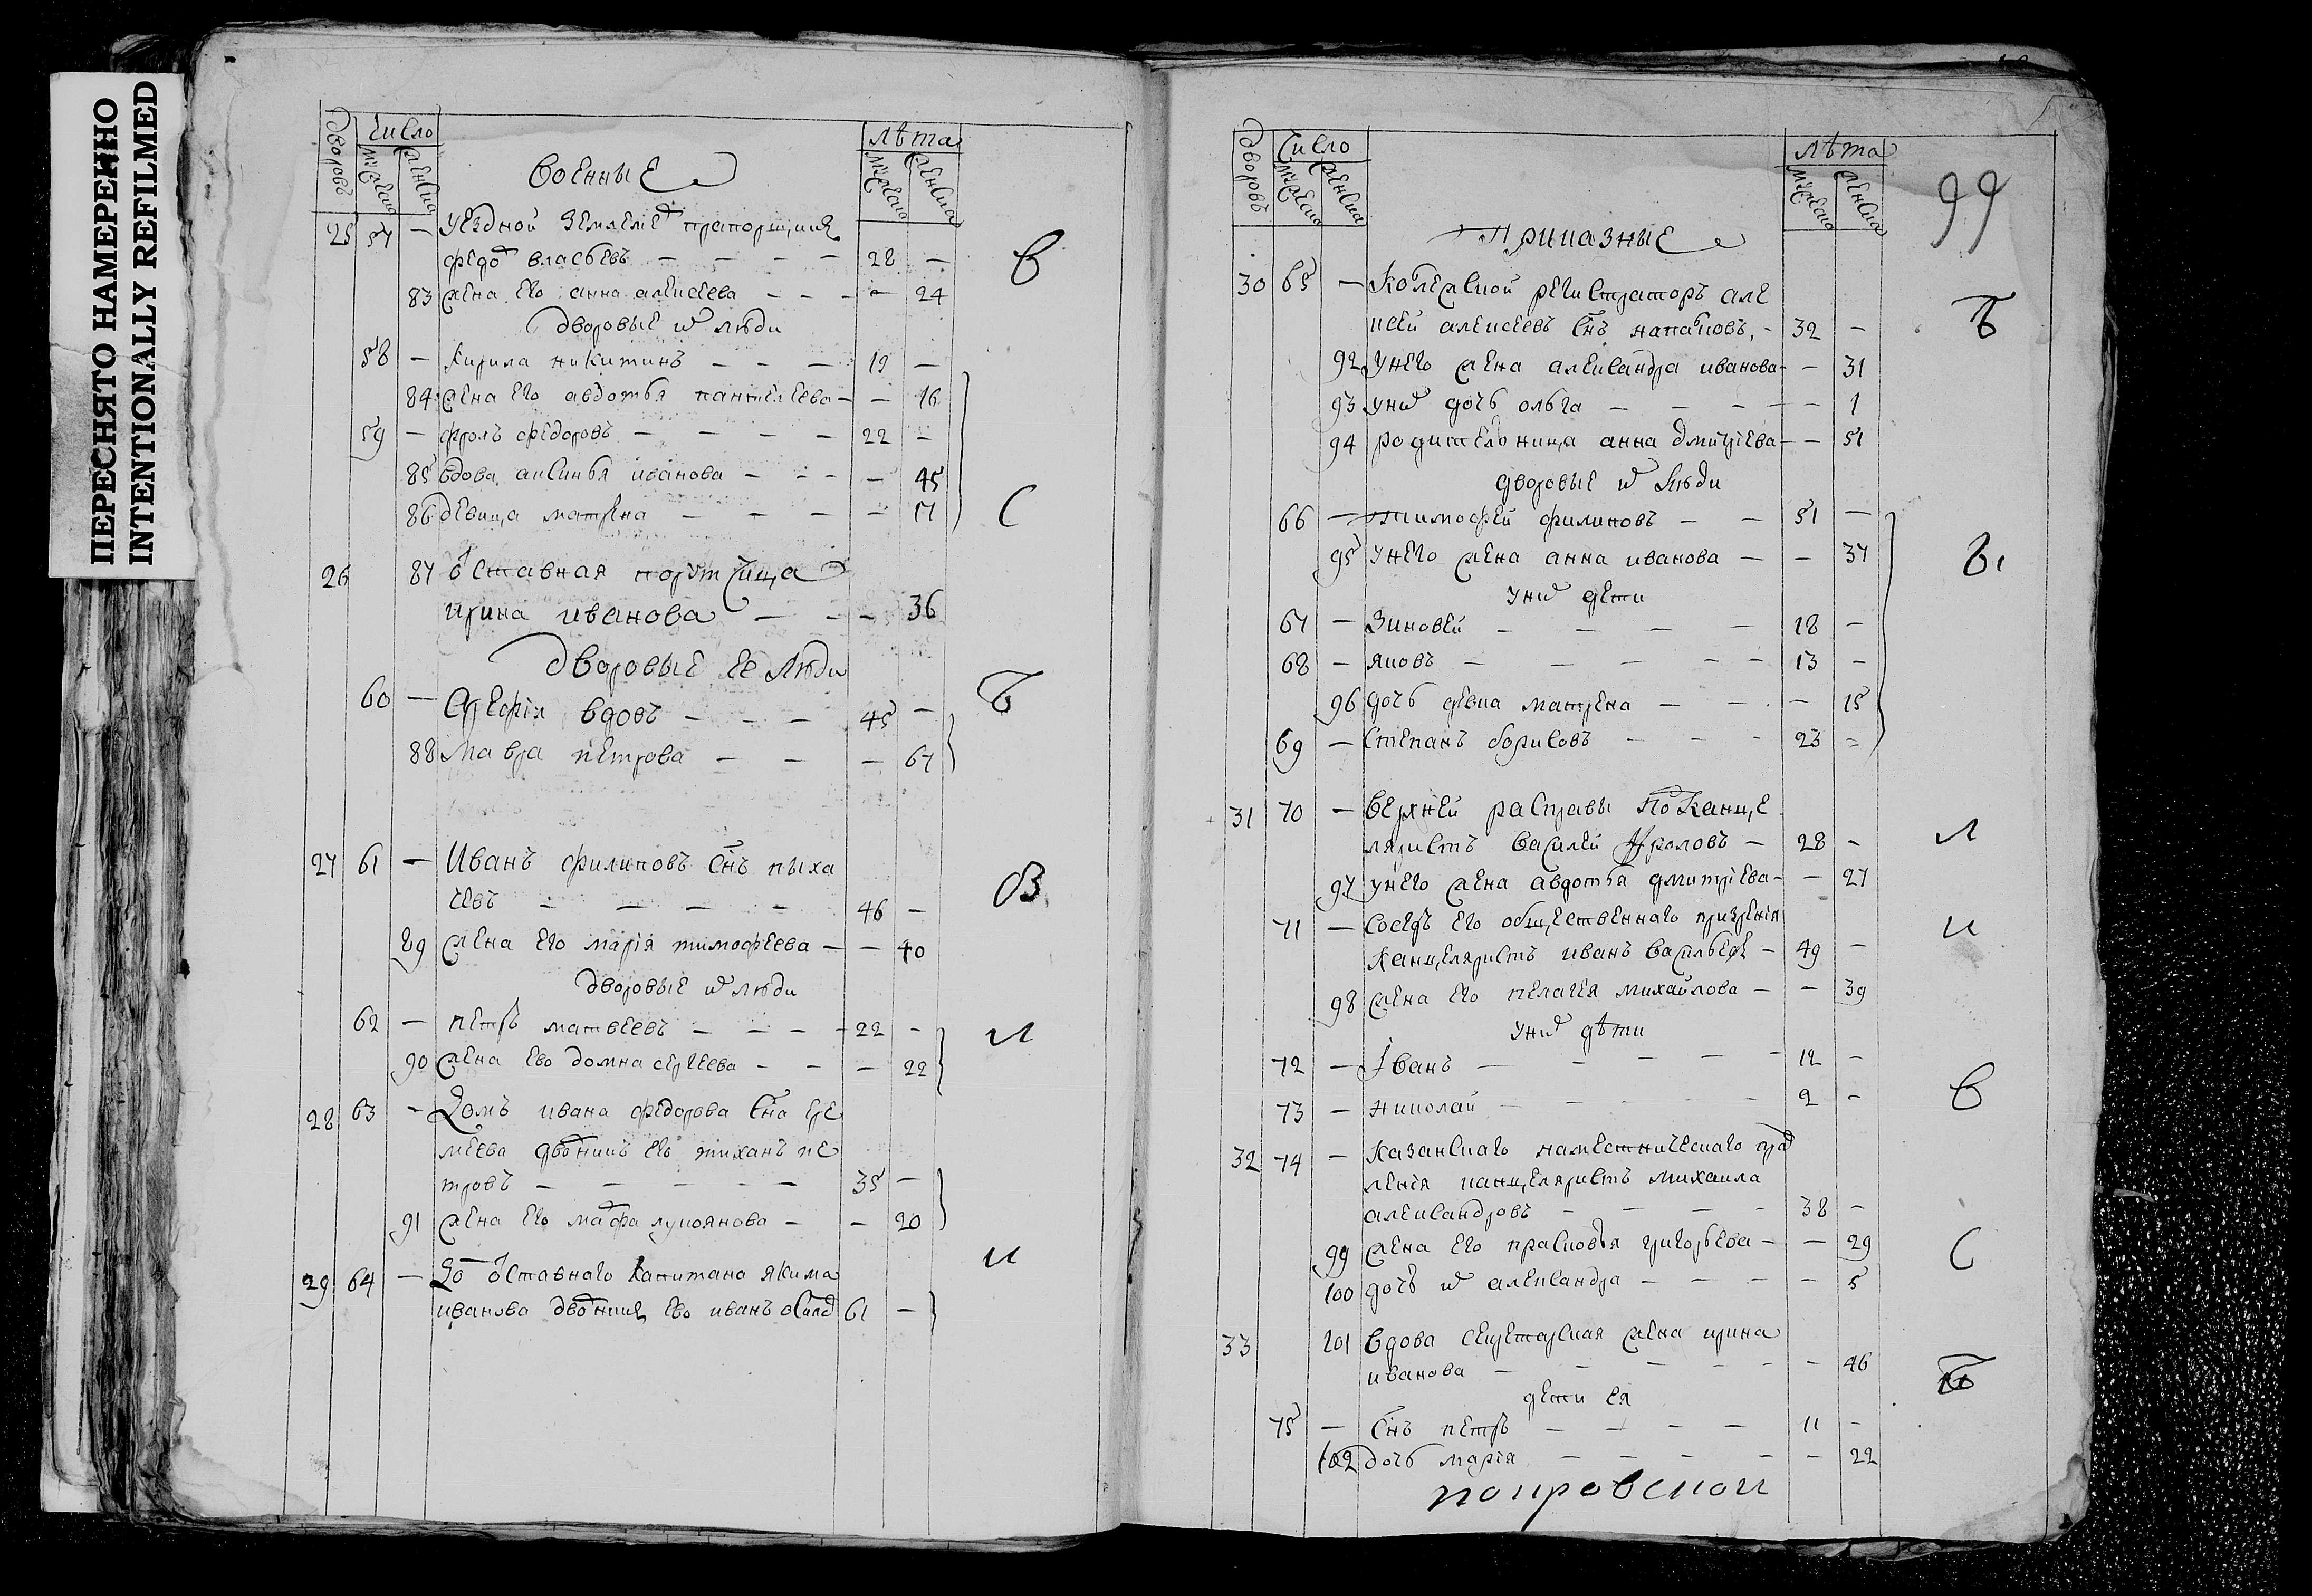 ПЕРЕСНЯТО НАМЕРЕННО
INTENTIONALLY REFILMED
дворовъ число лѣта
мужеска женска мужеска женска
военные
25 57 — уездной землемеръ прапорщикъ
федоръ власьевъ — — — — 28 —
83 жена его анна алексеева — — — — 24
дворовые их люди
58 — кирила никитинъ — — — 19 —
84 жена его авдотья пантелеева — — 16
59 — фролъ федоровъ — — — — 22 —
85 вдова аксинья иванова — — — — 45
86 девица матрена — — — — 17
С
26 87 отставная порутчица
ирина иванова — — — 36
дворовые ее люди
60 — вдовъ — — — 45 —
88 мавра петрова — — — 67
27 61 — Иванъ филиповъ снъ пыха
чевъ — — — — 46 —
89 жена его марiя тимофеева — — 40
дворовые их люди
62 — петръ матвеевъ — — — 22 —
90 жена ево домна сергеева — — — 22
28 63 — домъ ивана федорова сна ере
меева дворникъ его тиханъ пе
тровъ — — — — — 35 —
91 жена его марфа лукоянова — — 20
29 64 — до отставного капитана якима
иванова дворникъ ево иванъ осипов 61 —
дворовъ число лѣта
мужеска женска мужеска женска
99
приказные
30 65 — колежской регистраторъ але
ксей алексеевъ снъ 32 —
92 у него жена александра иванова — — 31
93 у них дочь ольга — — — — — 1
94 родительница анна дмитрiева — — 51
дворовые их люди
66 — тимофей филиповъ — — 51 —
95 у него жена анна иванова — — 37
у них дети
67 — Зиновей — — — — 18 —
68 — яковъ — — — — — 13 —
96 дочь девка матрена — — — 15
69 — степанъ борисовъ — — — 23 =
31 70 — верхней расправы подканце
ляристъ василей фроловъ — 28 —
97 у него жена авдотья дмитрiева — — 27
71 — соседъ его общественнаго призренiя
канцеляристъ иванъ васильевъ — 49 —
98 жена его пелагея михайлова — — 39
у них дѣти
72 — Iванъ — — — — — 12 —
73 — николай — — — — — 2 —
32 74 — казанскаго наместническаго прав
ленiя канцеляристъ михаила
александровъ — — — — 38 —
99 жена его прасковья григорьева — — 29
100 дочь их александра — — — — 5
33 101 вдова секретарская жена ирина
иванова — — — — — — 46
дети ея
75 — снъ петръ — — — — 11 —
102 дочь марiя — — — — — 22
покровской